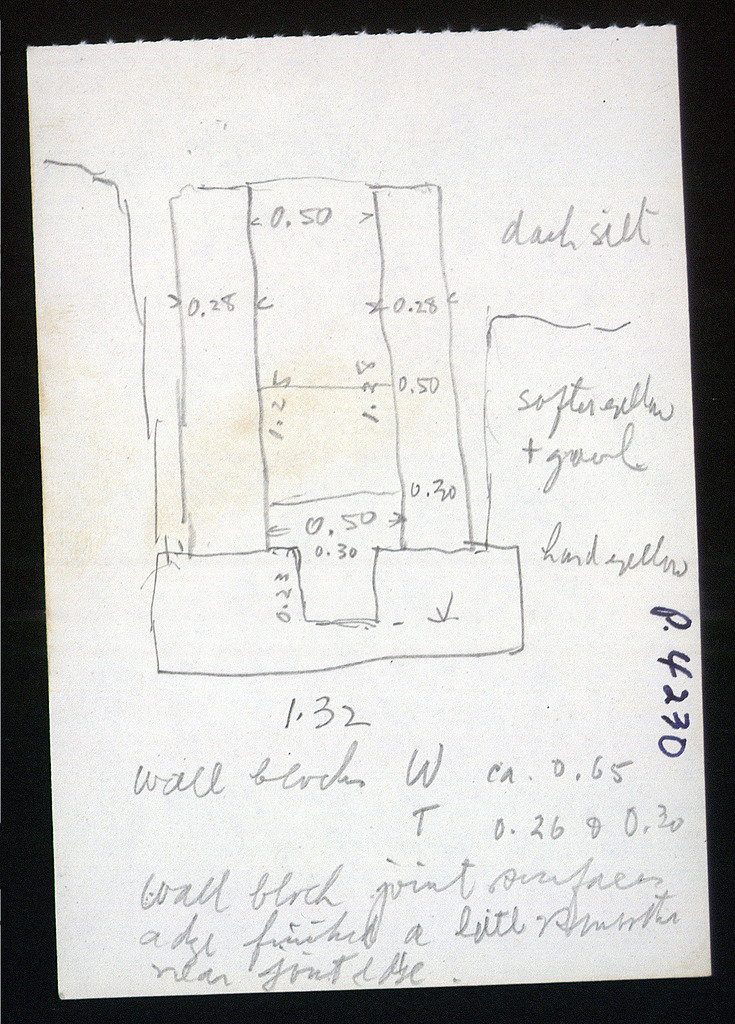 0.50
dark silt
0.28
0.28
1.25
1.25
0.50
soft yellow
+ gravel
0.30
0.50
0.30
hard yellow
0.23
P. 4230
1.32
wall blocks W ca. 0.65
T 0.26 & 0.30
wall block joint surfaces
edge finished a little smoother
near joint edge.